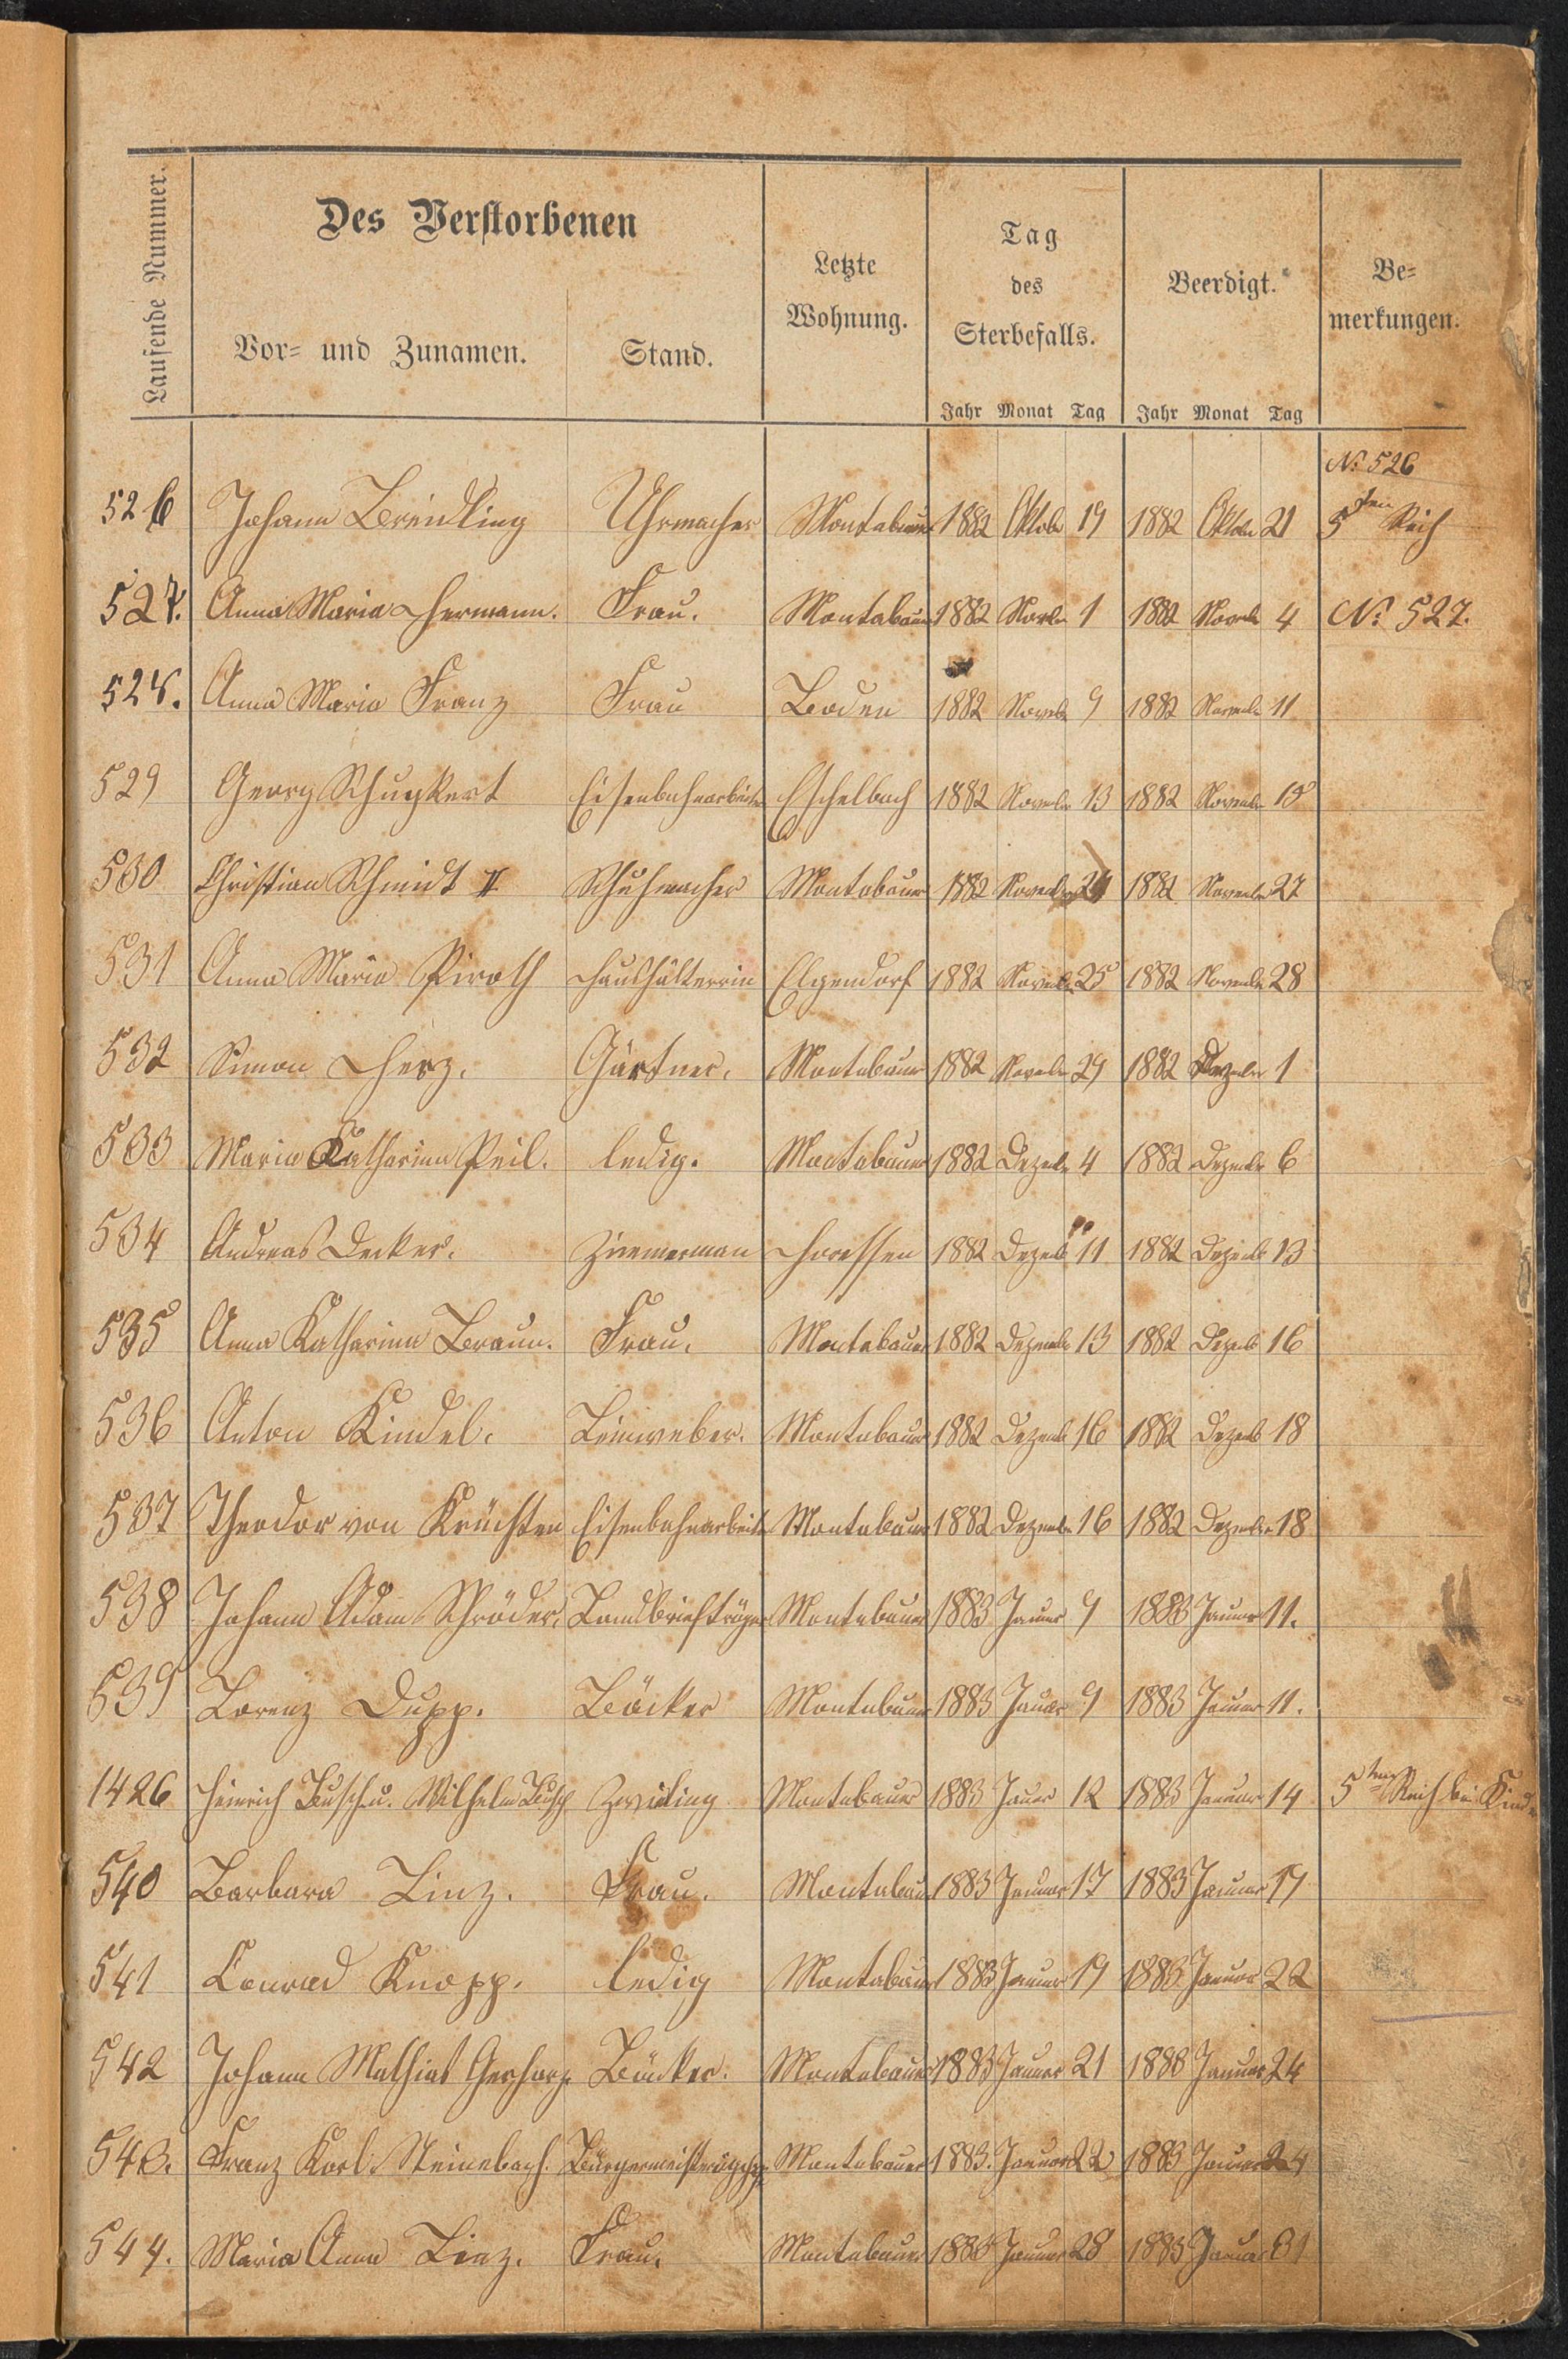 Laufende Nummer.
Des Verstorbenen
Vor- und Zunamen.
Stand.
Letzte
Wohnung.
Tag
des
Sterbefalls.
Beerdigt.
Be-
merkungen.
Jahr Monat Tag Jahr Monat Tag
No 526
526 Johann Breidling Uhrmacher Montabaur 1882 Oktob 19 1882 Oktbr 21 5ten Reih
527. Anna Maria Hermann. Frau. Montabaur 1882 Novbr 1 1882 Novbr 4 No 527.
528. Anna Maria Franz Frau Boden 1882 Novbr 9 1882 Novembr 11
529 Georg Eisenbahnarbeiter Eschelbach 1882 Novbr 13 1882 Novembr 15
530 Christian Schmidt II Schuhmacher Montabaur 1882 Novembr 24 1882 Novembr 27
531 Anna Maria Piroth Haushälterrin Elgendorf 1882 Novembr 25 1882 Novembr 28
532 Simon Herz. Gärtner. Montabaur 1882 Novbr 29 1882 Dezembr 1
533 Maria Katharina Peil. ledig. Montabaur 1882 Dezbr 4 1882 Dezembr 6
534 Andreas Decker. Zimmerman Horessen 1882 Dezemb 11 1882 Dezemb 13
535 Anna Katharina Braun. Frau. Montabaur 1882 Dezember 13 1882 Dezemb 16
536 Anton Kindel. Leinweber. Montabaur 1882 Dezemb 16 1882 Dezemb 18
537 Theodor von Krüchten Eisenbahnarbeiter Montabaur 1882 Dezembr 16 1882 Dezembr 18
538 Johann Adam Schröder. Landbriefträger Montabaur 1883 Januar 9 1883 Januar 11.
539 Lorenz Dupp. Bäcker Montabaur 1883 Januar 9 1883 Januar 11.
1426 Heinrich Busch u. Wilhelm Busch Zwilling Montabaur 1883 Januar 12 1883 Januar 14 5ten Reih bei Kinder
540 Barbara Linz. Frau. Montabaur 1883 Januar 17 1883 Januar 19
541 Conrad Knopp. ledig Montabaur 1883 Januar 19 1883 Januar 22
542 Johann Mathias Gerharz Bäcker. Montabaur 1883 Januar 21 1883 Januar 24
543. Franz Karl Steinebach. Montabaur 1883. Januar 22 1883 Januar 24
544. Maria Anna Linz. Frau. Montabaur 1883 Januar 28 1883 Januar 31